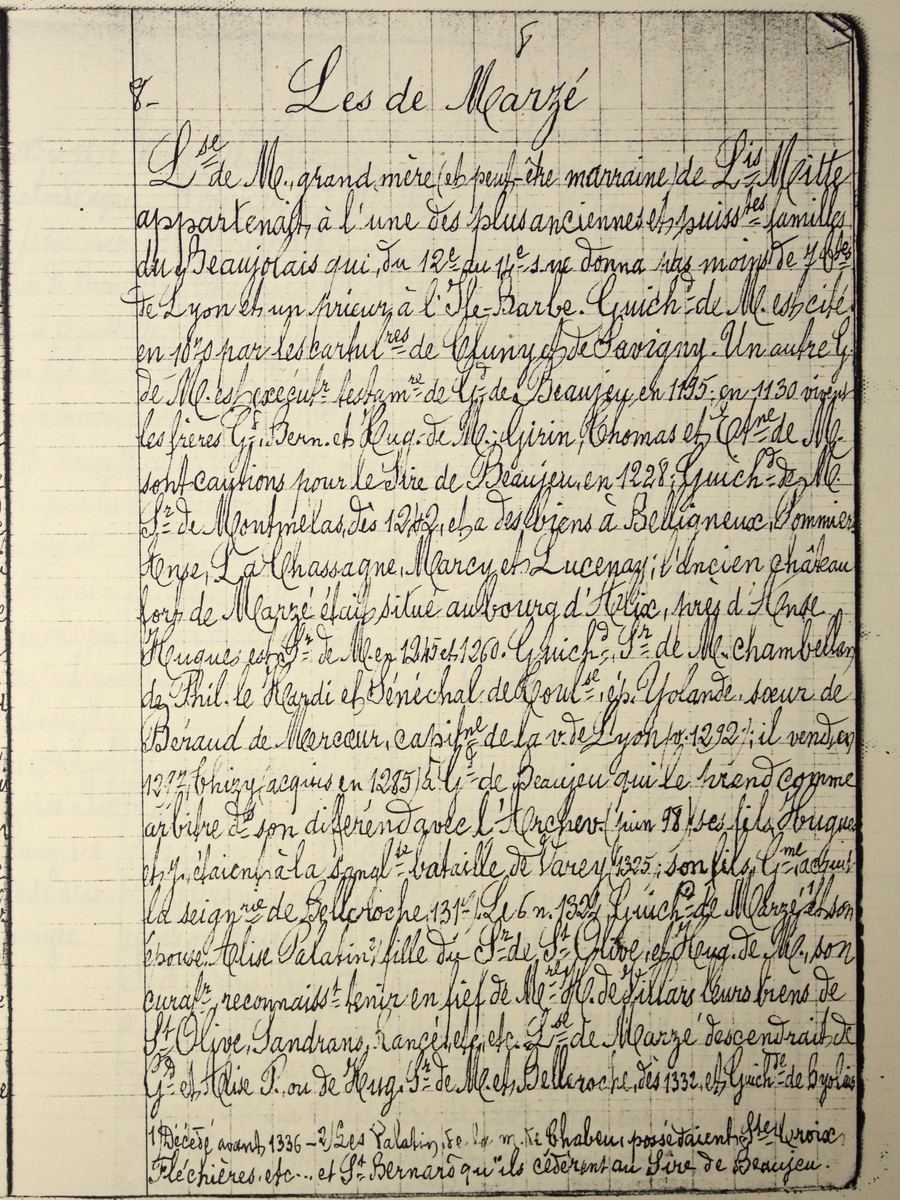 8-
Les de Marzé
Lse de M., grand mère (et peut-être marraine) de Lis Mitte
appartenait à l'une des plus anciennes et puisstes familles
du Beaujolais qui, du 12e au 14e s. ne donna pas moins de 7
de Lyon et un prieur à l'Ile-Barbe. Guichd de M. est cité
en par les cartulres de Cluny et de Savigny. Un autre G.
de M. est exécutr testamre de Gd de Beaujeu en 1195; en 1130 vivent
les frères Gd, Bern. et Hug. de M.; Girin, Thomas et Etne de M.
sont cautions pour le Sire de Beaujeu, en 1228; Guichd de M.
Sr de Montmélas, dès 1242, et a des biens à Belligneux, Pommiers
Anse, La Chassagne, Marcy et Lucenay; l'ancien château
fort de Marzé était situé au bourg d'Alix, près d'Anse.
Hugues est Sr de M. en 1245 et 1260. Guichd, Sr de M. chambellan
de Phil. le Hardi et Sénéchal de Toulse, ép. Yolande, sœur de
Béraud de Mercœur, capitne de la v. de Lyon (v. 1292); il vend, en
1297, Thizy (acquis en 1285) à Gd de Beaujeu qui le prend comme
arbitre ds son différend avec l'Archev. (juin 98); ses fils, Hugues
et J. étaient à la sanglte bataille de Varey, 1325; son fils, Gme, acquit
la seignrie de Belleroche, Le 6 n. Guichd de Marzé 1) et son
épouse Alise Palatin 2) fille du Sr de St Olive, et Hug. de M., son
curatr, reconnaisst tenir en fief de H. de Villars leurs biens de
St Olive, Sandrans, Rancé, etc, etc. Lse de Marzé descendrait de
Gd et Alise P. ou de Hug. Sr de M. et Belleroche, dès 1332, et de
1) Décédé avant 1336 - 2) Les Palatin, de la m. de Chabeu, possédaient Ste Croix,
Fléchières, etc... et St Bernard qu'ils cédèrent au Sire de Beaujeu.